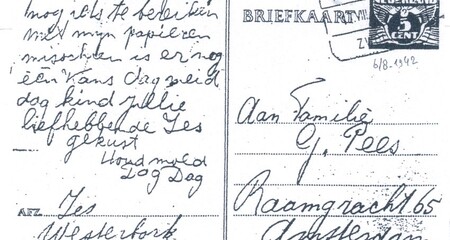 nog iets te bereiken
met mijn papieren
misschien is er nog
één kans dag meid
dag kind jullie
liefhebbende Jes
gekust
Houd moed
Dag Dag
AFZ. Jes
Westerbork
BRIEFKAART
NEDERLAND
5
CENT
6/8-1942
Aan Familie
G. Pees
Raamgracht 65
Amsterdam